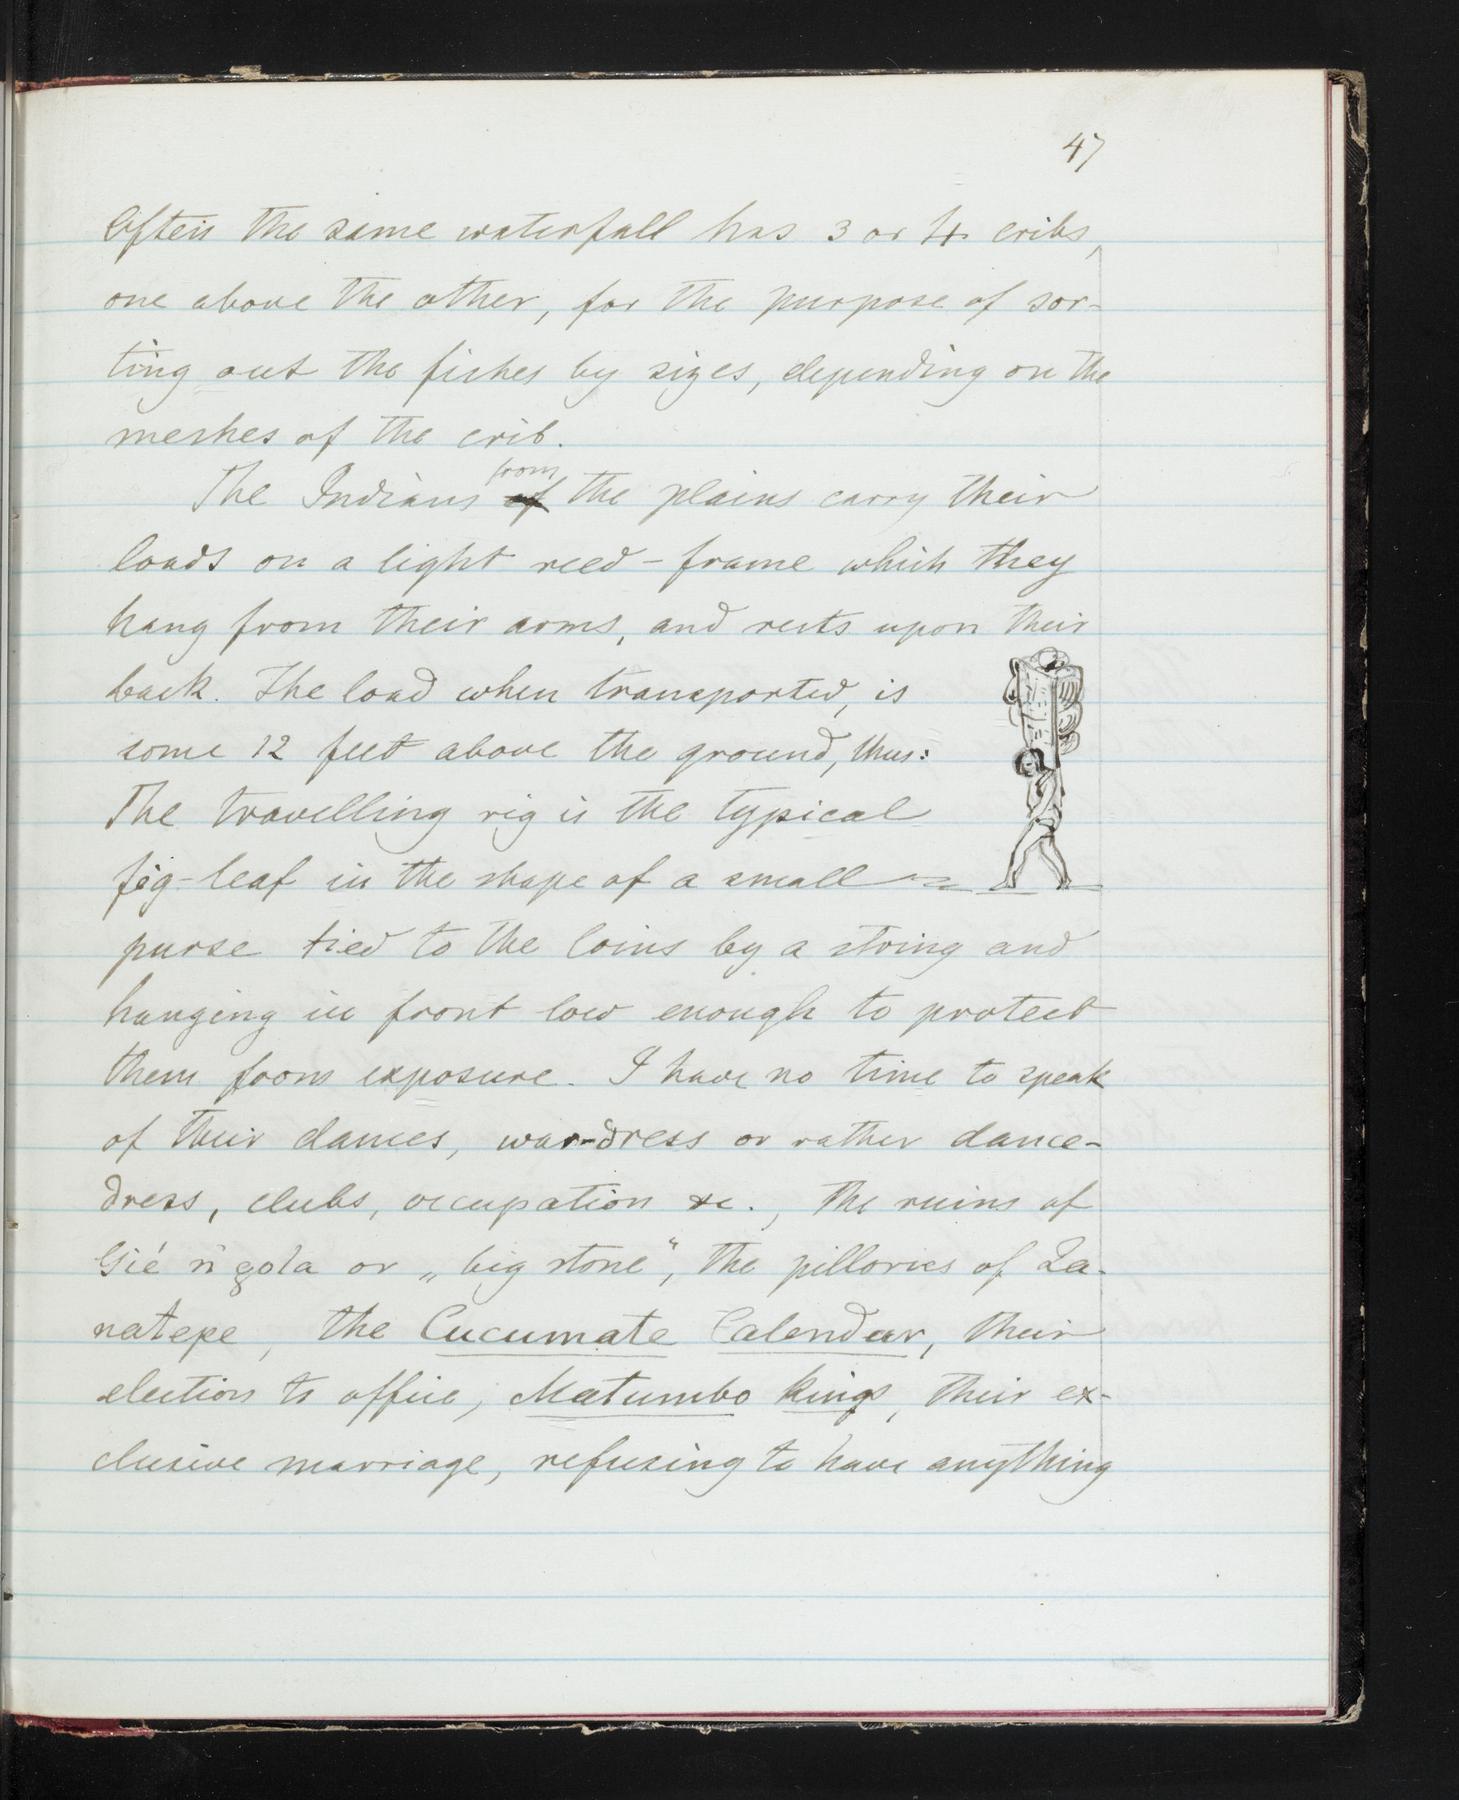 47
Often the same waterfall has 3 or 4 cribs,
one above the other, for the purpose of sor-
ting out the fishes by sizes, depending on the
meshes of the crib.
The Indians of from the plains carry their
loads on a light reed-frame which they
hang from their arms, and rests upon their
back. The load when transported, is
some 12 feet above the ground, thus:
The travelling rig is the typical
fig-leaf in the shape of a small
purse tied to the loins by a string and
hanging in front low enough to protect
them from exposure. I have no time to speak
of their dances, war-dress or rather dance-
dress, clubs, occupation &c., the ruins of
Gié n gola or „big stone", the pillories of Za-
natepe, the Cucumate Calendar, their
election to office, Matumbo kings, their ex-
clusive marriage, refusing to have anything